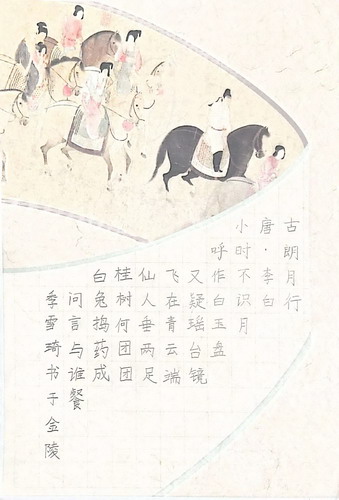 古朗月行
唐·李白
小时不识月
呼作白玉盘
又疑瑶台镜
飞在青云端
仙人垂两足
桂树何团团
白兔捣药成
问言与谁餐
季雪琦书于金陵